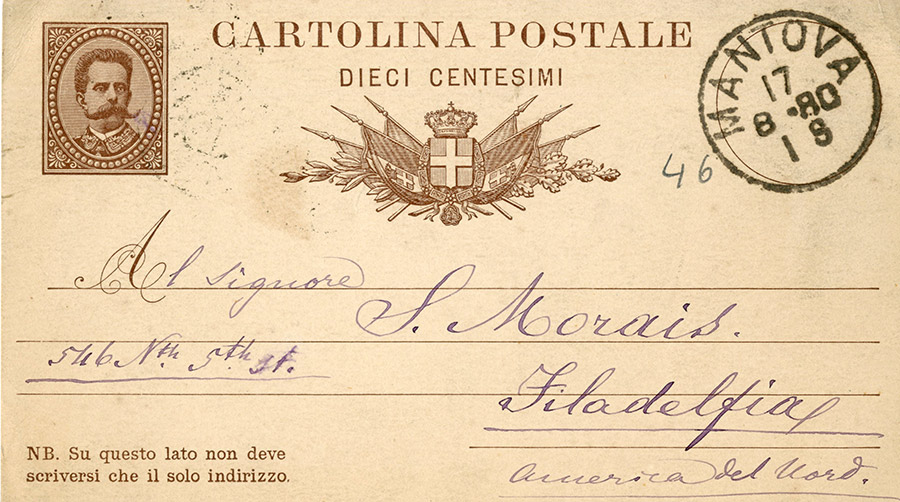 CARTOLINA POSTALE
DIECI CENTESIMI
MANTOVA
17
8 80
1 S
46
Al Signore
S. Morais.
546 Nth. 5th st.
Filadelfia
America del Nord.
NB. Su questo lato non deve
scriversi che il solo indirizzo.